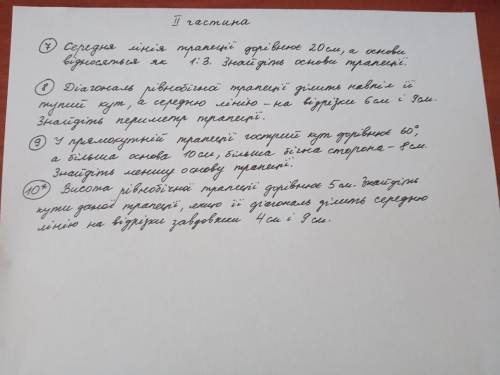 II частина
7 Середня лінія трапеції дорівнює 20 см, а основи
відносяться як 1:3. Знайдіть основи трапеції.
8 Діагональ рівнобічної трапеції ділить навпіл її
тупий кут, а середню лінію - на відрізки 6 см і 9 см.
Знайдіть периметр трапеції.
9 У прямокутній трапеції гострий кут дорівнює 60°,
а більша основа 10 см, більша бічна сторона - 8 см.
Знайдіть меншу основу трапеції.
10* Висота рівнобічної трапеції дорівнює 5 см. Знайдіть
кути даної трапеції, якщо її діагональ ділить середню
лінію на відрізки завдовжки 4 см і 9 см.